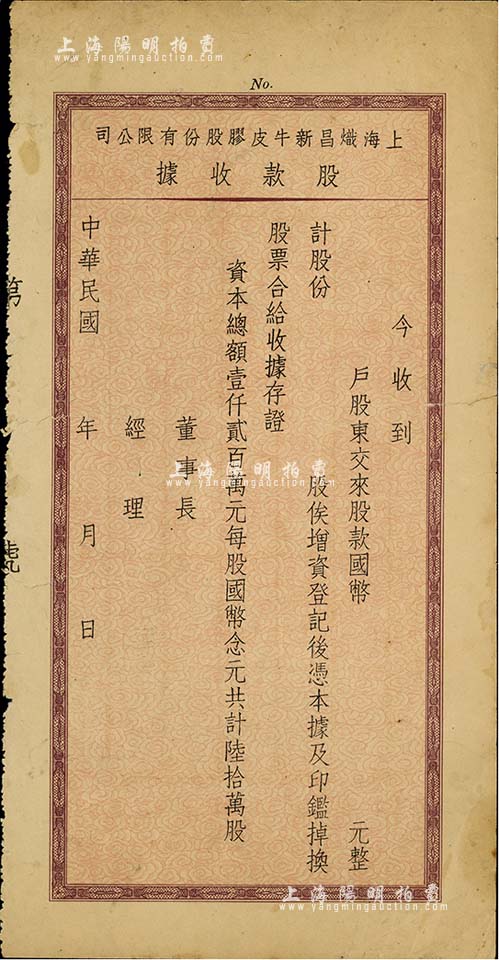 上海陽明拍賣
www.yangmingauction.com
No.
上海熾昌新牛皮膠股份有限公司
股款收據
今收到
戶股東交來股款國幣　元整
計股份　股俟增資登記後憑本據及印鑑掉換
股票合給收據存證
資本總額壹仟貳百萬元每股國幣念元共計陸拾萬股
董事長
經理
中華民國　年　月　日
上海陽明拍賣
www.yangmingauction.com
上海陽明拍賣
www.yangmingauction.com